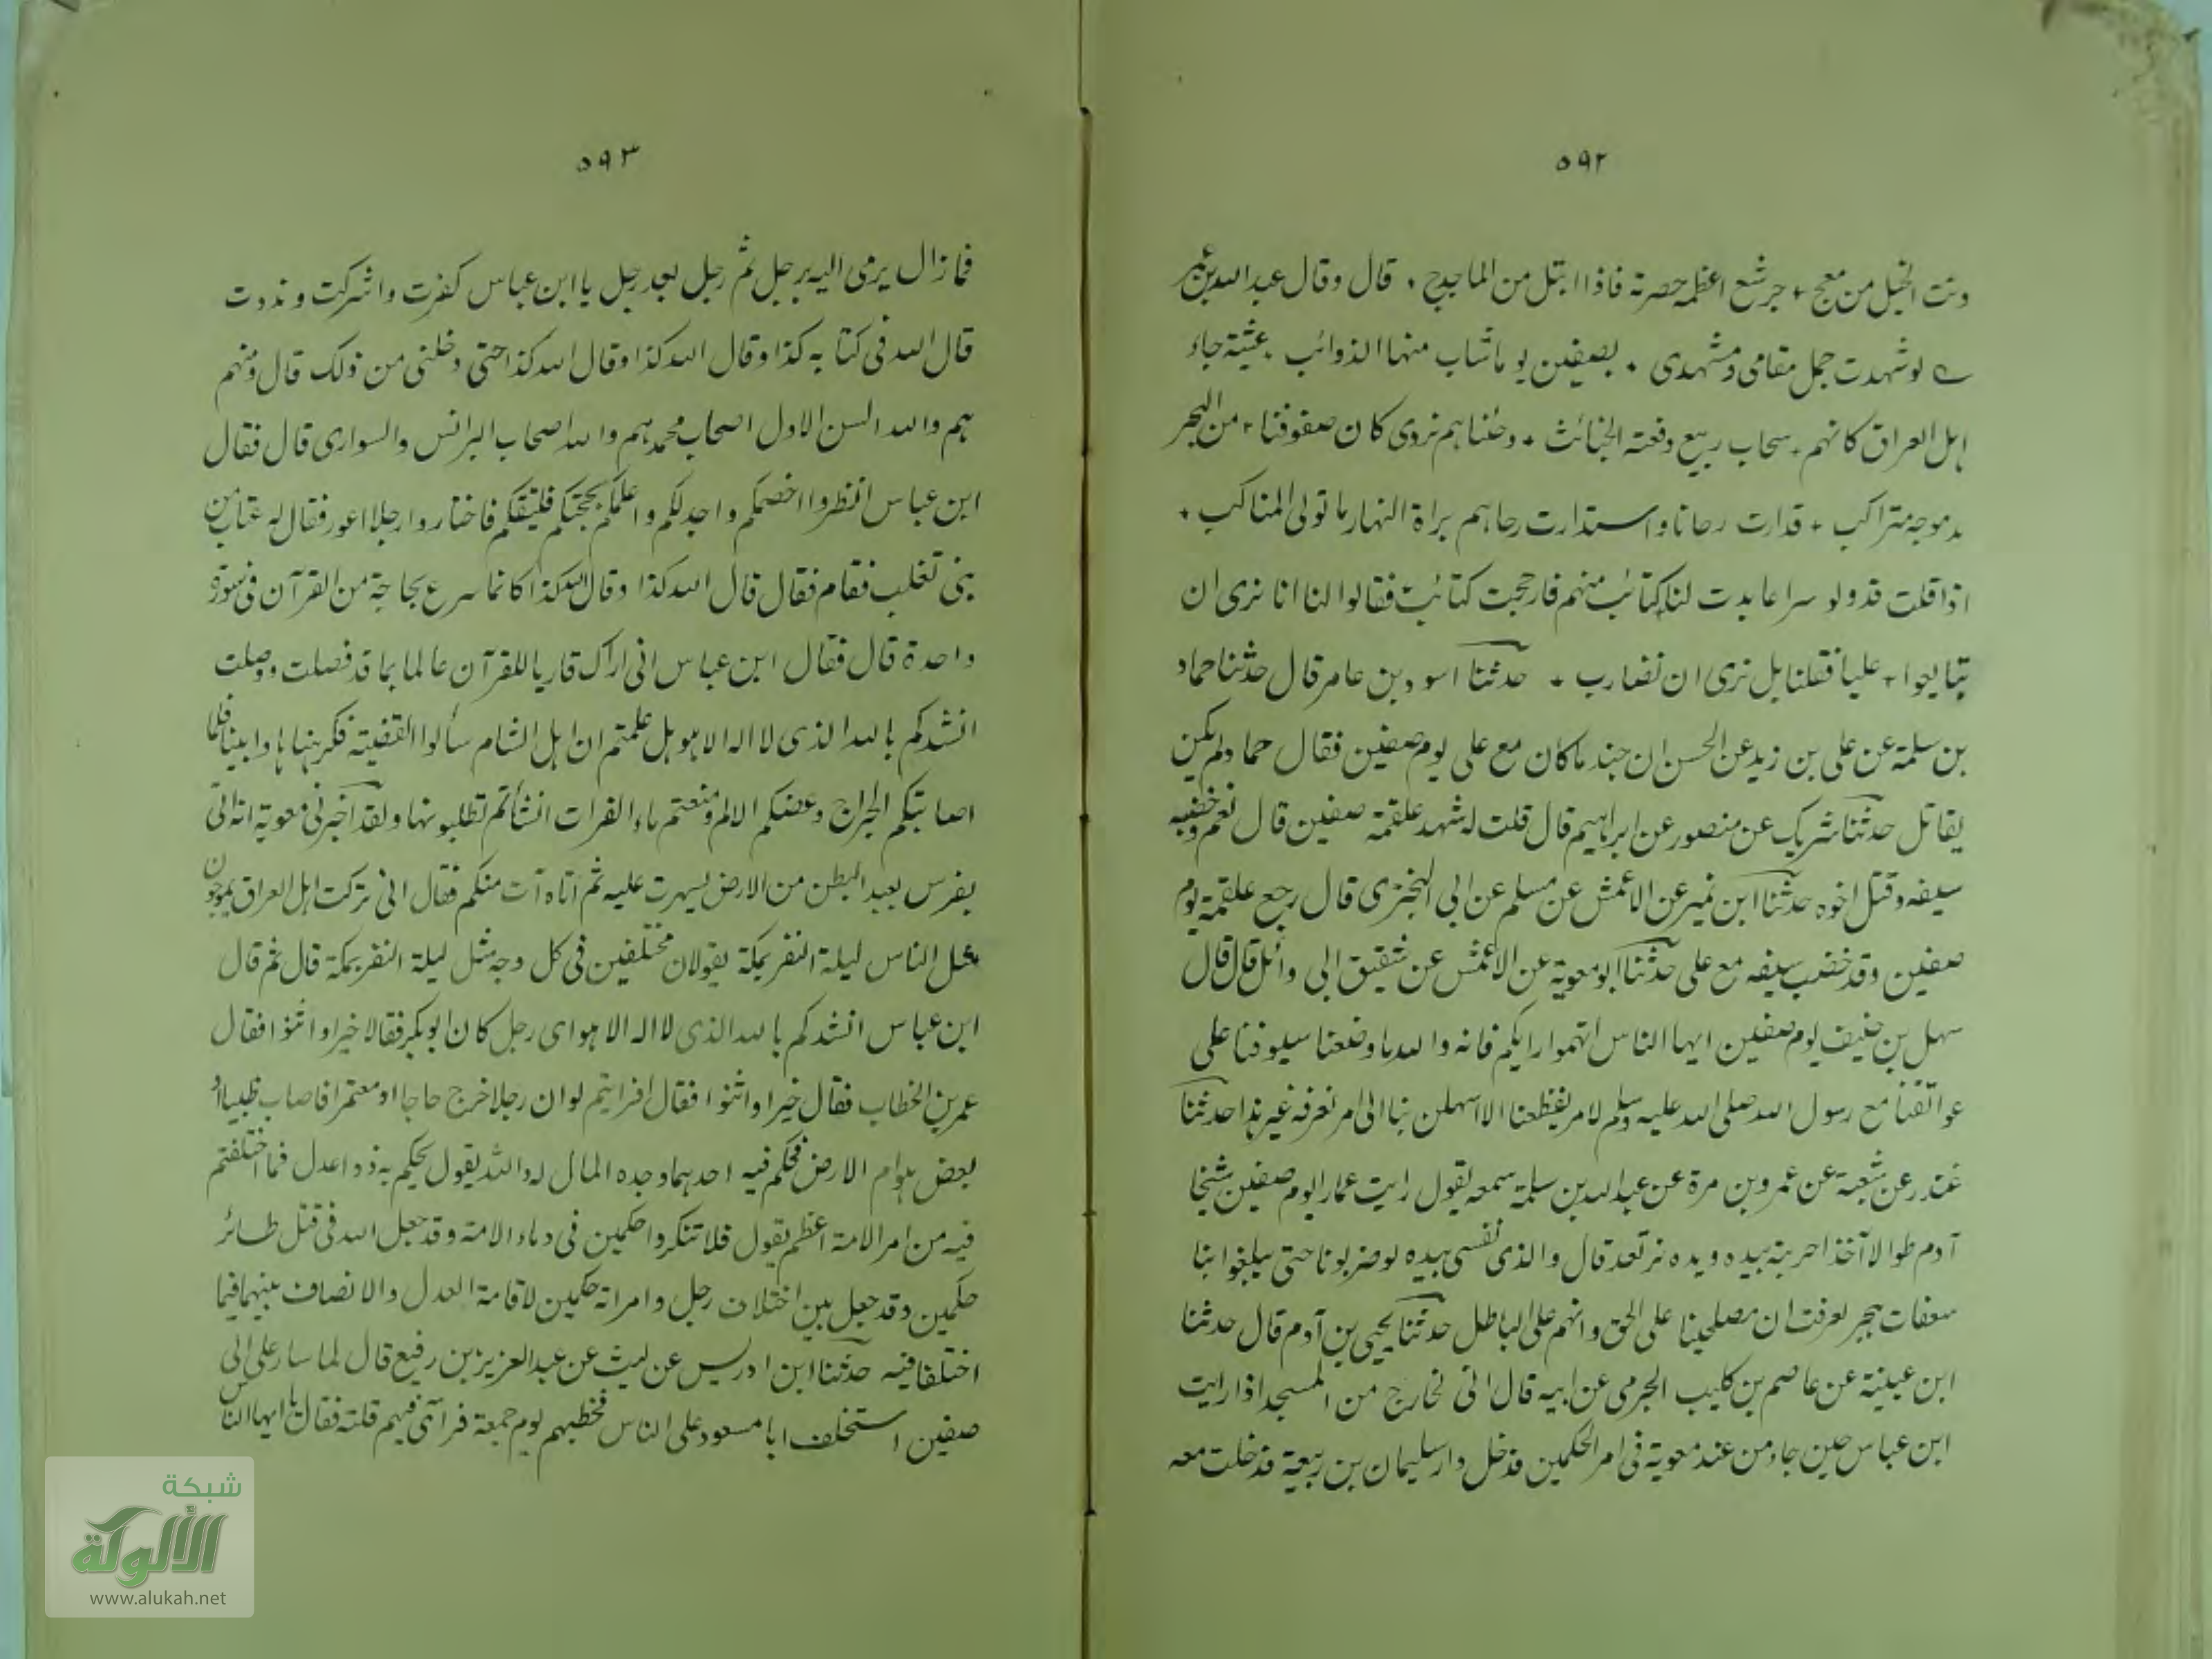 ٥٩٢
ونت الخيل من معج + جرشع اعظمه حصرته فاذا ابتل من الماجدح + قال وقال عبدالله بن عمر
لو شهدت جمل مقامى ومشهدى + بصفين يوما شاب منها الذوائب + عشية جاء
اهل العراق كانهم + سحاب ربيع دفعته الجنائب + وجئناهم نردى كان صفوفنا + من البحر
مد موجه متراكب + فدارت رحانا واستدارت رحاهم براة النهار ما تولى المناكب +
اذا قلت قد ولو سراعا بدت لنا كتائب منهم فارجحت كتائب فقالوا لنا انا نرى ان
تبايعوا + عليا فقلنا بل نرى ان نضارب + حدثنا اسود بن عامر قال حدثنا حماد
بن سلمة عن على بن زيد عن الحسن ان جندبا كان مع على يوم صفين فقال حماد لم يكن
يقاتل حدثنا شريك عن منصور عن ابراهيم قال قلت له شهد علقمة صفين قال نعم وخضب
سيفه وقتل اخوه حدثنا ابن نمير عن الاعمش عن مسلم عن ابى البخترى قال رجع علقمة يوم
صفين وقد خضب سيفه مع على حدثنا ابو معوية عن الاعمش عن شقيق ابى وائل قال قال
سهل بن حنيف يوم صفين ايها الناس اتهموا رايكم فانه والله ما وضعنا سيوفنا على
عواتقنا مع رسول الله صلى الله عليه وسلم لامر يفظعنا الا اسهلن بنا الى امر نعرفه غير هذا حدثنا
غندر عن شعبة عن عمرو بن مرة عن عبدالله بن سلمة سمعه يقول رايت عمارا يوم صفين شيخا
آدم طوالا آخذا حربة بيده ويده ترتعد قال والذى نفسى بيده لو ضربونا حتى يبلغوا بنا
سعفات هجر لعرفت ان مصلحينا على الحق وانهم على الباطل حدثنا يحيى بن آدم قال حدثنا
ابن عيينة عن عاصم بن كليب الجرمى عن ابيه قال انى لخارج من المسجد اذ رايت
ابن عباس حين جاء من عند معوية فى امر الحكمين فدخل دار سليمان بن ربيعة فدخلت معه
٥٩٣
فما زال يرمى اليه برجل ثم رجل بعد رجل يا ابن عباس كفرت واشركت ونددت
قال الله فى كتابه كذا وقال الله كذا وقال الله كذا حتى دخلنى من ذلك قال ومنهم
هم والله السن الاول اصحاب محمد هم والله اصحاب البرانس والسوارى قال فقال
ابن عباس انظروا اخصمكم واجدلكم واعلمكم بحجتكم فليتكلم فاختاروا رجلا اعور فقال له عتاب من
بنى تغلب فقام فقال قال الله كذا وقال الله كذا كانما سرع بحاجة من القرآن فى سورة
واحدة قال فقال ابن عباس انى اراك قاريا للقرآن عالما بما قد فصلت ووصلت
انشدكم بالله الذى لا اله الا هو هل علمتم ان اهل الشام سألوا القضية فكرهناها وابينا فلما
اصابتكم الجراح وعضكم الالم ومنعتم ماء الفرات انشأتم تطلبونها ولقد اخبرنى معوية انه اتى
بفرس بعيد البطن من الارض ليهرب عليه ثم اتاه آت منكم فقال انى تركت اهل العراق يموجون
مثل الناس ليلة النفر بمكة يقولون مختلفين فى كل وجه مثل ليلة النفر بمكة قال ثم قال
ابن عباس انشدكم بالله الذى لا اله الا هو اى رجل كان ابو بكر فقالا خيرا واثنوا فقال
عمر بن الخطاب فقال خيرا واثنوا فقال افرايتم لو ان رجلا خرج حاجا او معتمرا فاصاب ظبيا او
بعض هوام الارض فحكم فيه احدهما وحده المال له والله يقول يحكم به ذوا عدل فما اختلفتم
فيه من امر الامة اعظم يقول فلا تنكروا حكمين فى دماء الامة وقد جعل الله فى قتل طائر
حكمين وقد جعل بين اختلاف رجل وامراته حكمين لاقامة العدل والانصاف بينهما فيما
اختلفا فيه حدثنا ابن ادريس عن ليث عن عبدالعزيز بن رفيع قال لما سار على الى
صفين استخلف ابا مسعود على الناس فخطبهم يوم جمعة فرآى فيهم قلة فقال يا ايها الناس
شبكة
الألوكة
www.alukah.net